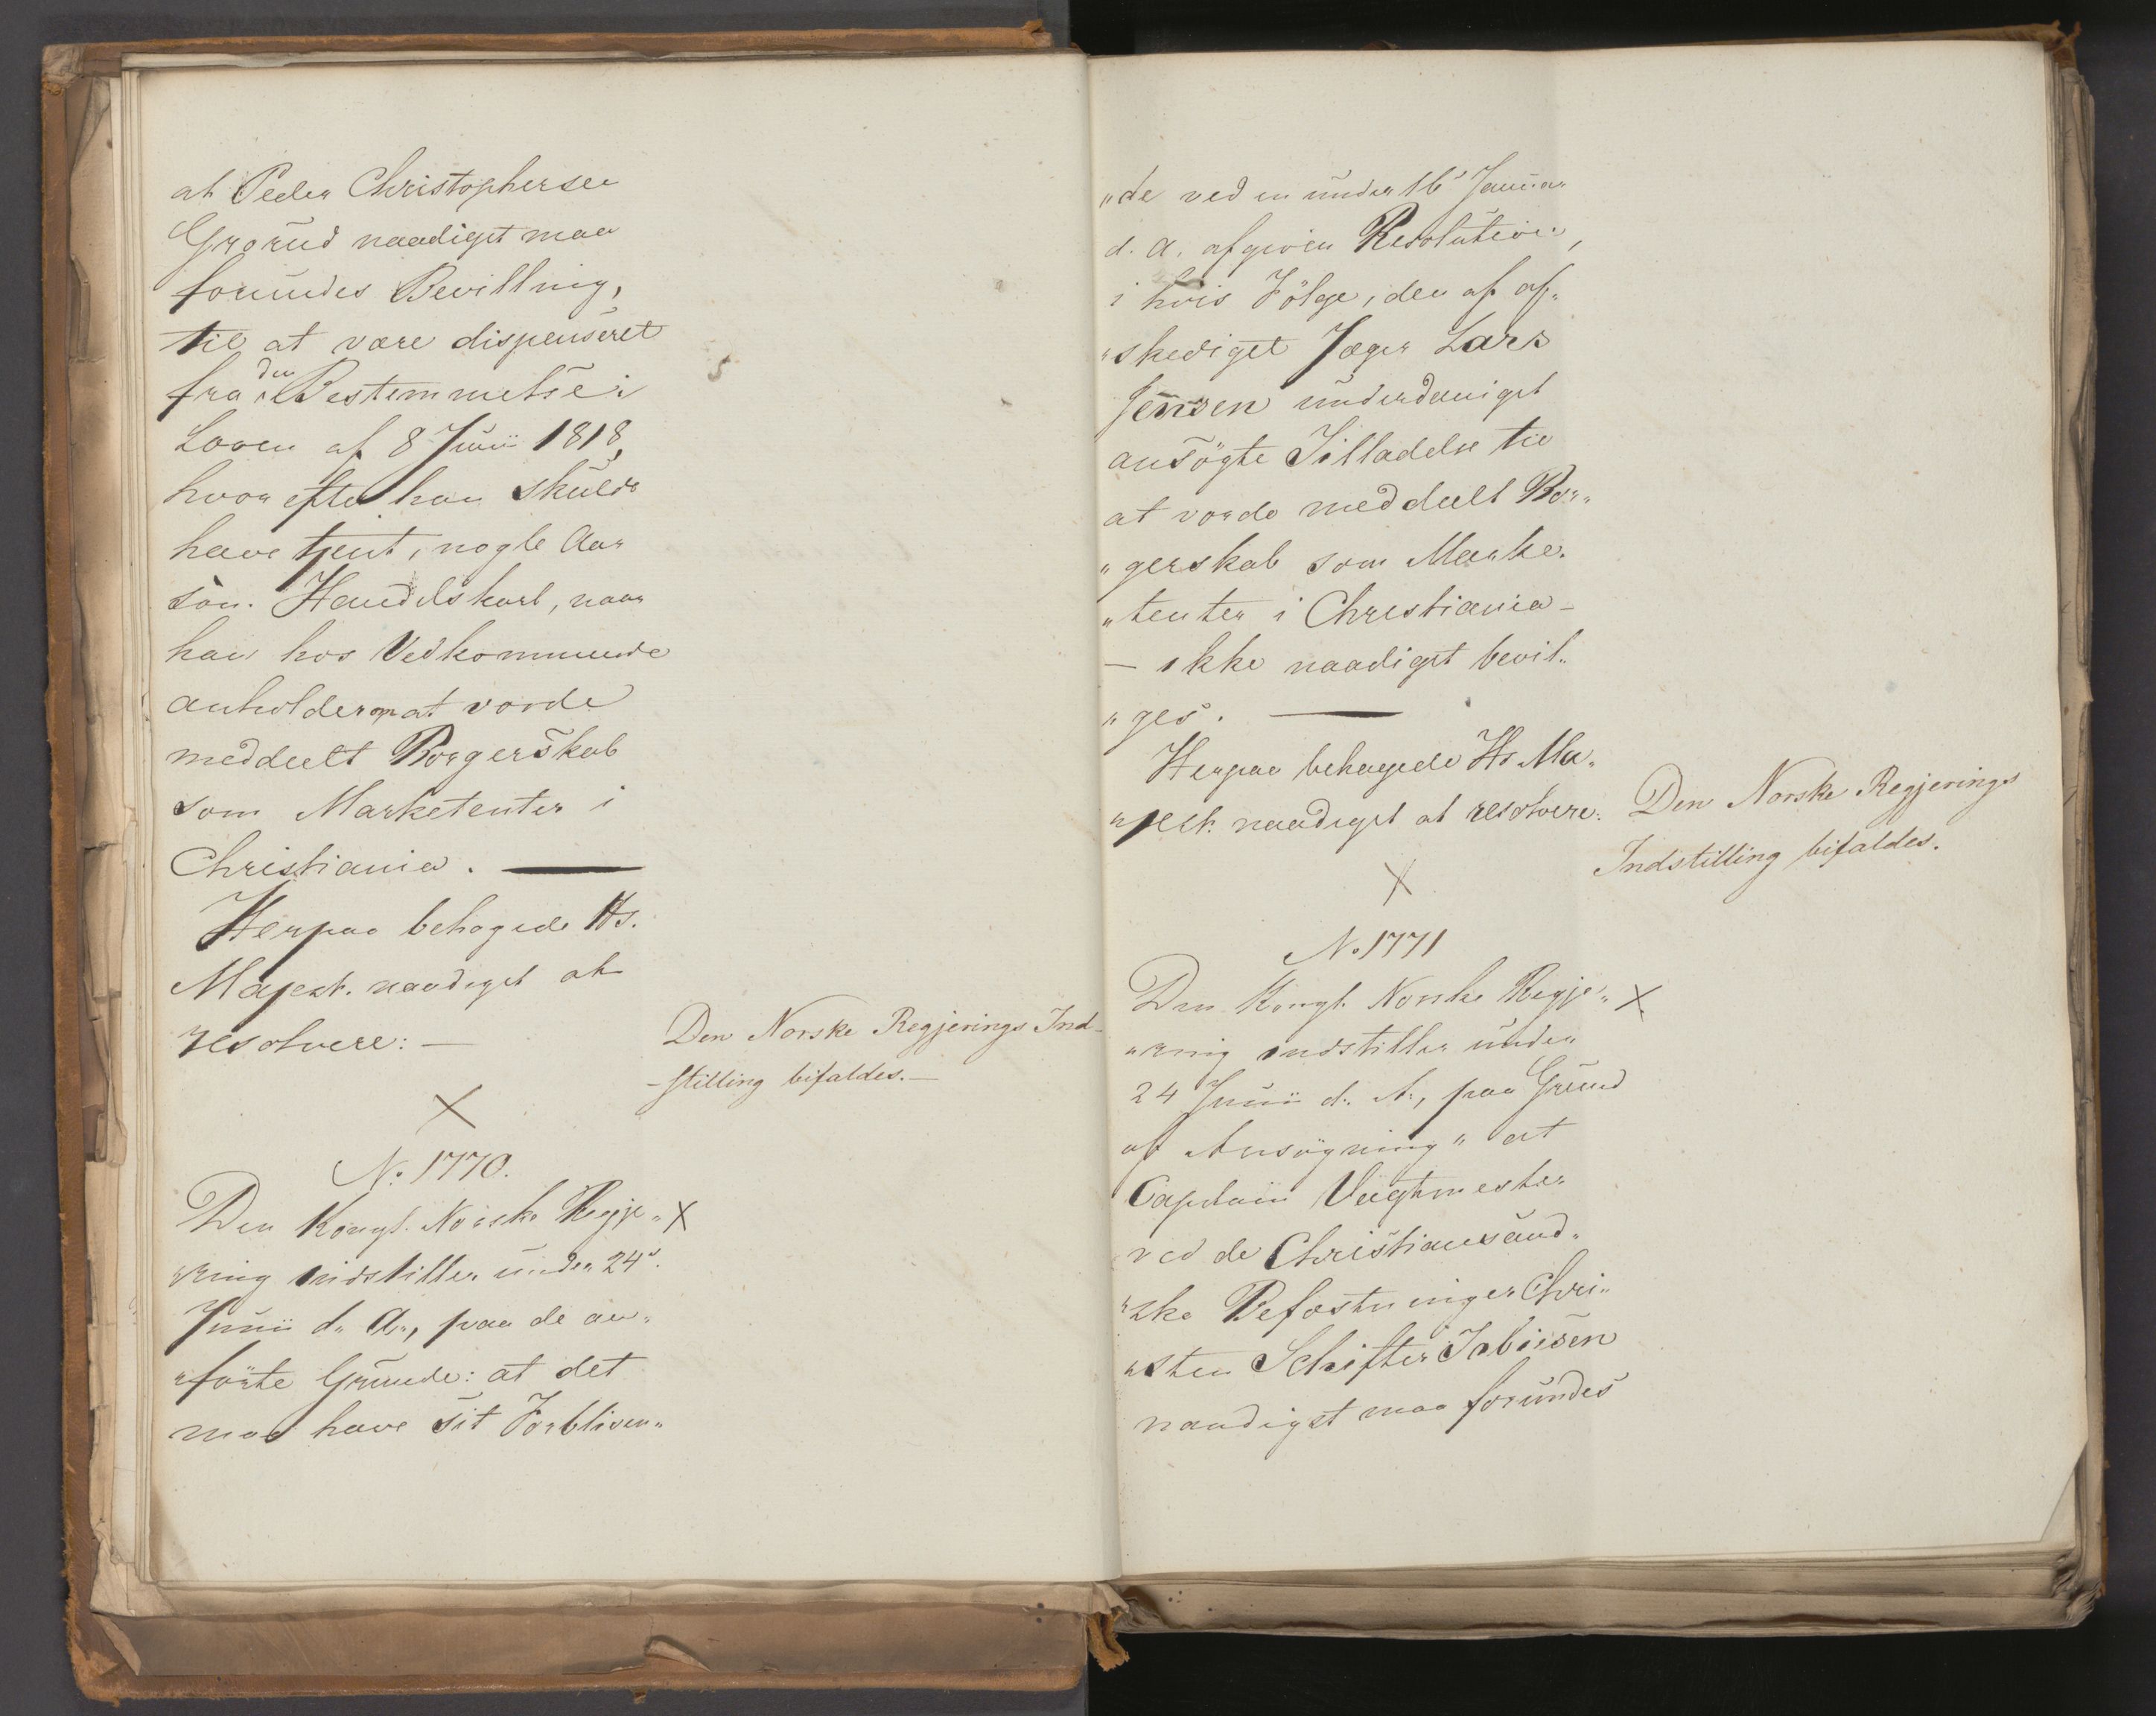 at Peder Christophersen
Grorud naadigst maa
forundes Bevilling,
til at være dispenseret
fra den Bestemmelse i
Loven af 8 Junii 1818,
hvorefter han skulde
have tjent i nogle Aar
som Handelskarl, naar
han hos Vedkommende
anholder om at vorde
meddeelt Borgerskab
som Marketenter i
Christiania. —
Herpaa behagede Hs.
Majest. naadigst at
resolvere: —
Den Norske Regjerings Ind-
-stilling bifaldes. —
X
No 1770.
Den Kongl. Norske Regje„ X
„ring indstiller under 24de
Junii d. A., paa de an„
„førte Grunde: at det
maa have sit Forbliven„
„de ved en under 16de Januar
d. A. afgiven Resolution,
i hvis Fölge, den af af„
„skediget Jæger Lars
Jensen underdanigst
ansögte Tilladelse til
at vorde meddeelt Bor„
„gerskab som Marke„
„tenter i Christiania –
– ikke naadigst bevil„
„ges. —
Herpaa behagede Hs. Ma„
„jest. naadigst at resolvere:
Den Norske Regjerings
Indstilling bifaldes.
X
No 1771
Den Kongl. Norske Regje„ X
„ring indstiller under
24 Junii d. A., paa Grund
af Ansögning „ at
Capitain Vagtmester
ved de Christiansand„
„ske Befæstninger Chri„
„sten Schifter
naadigst maa forundes